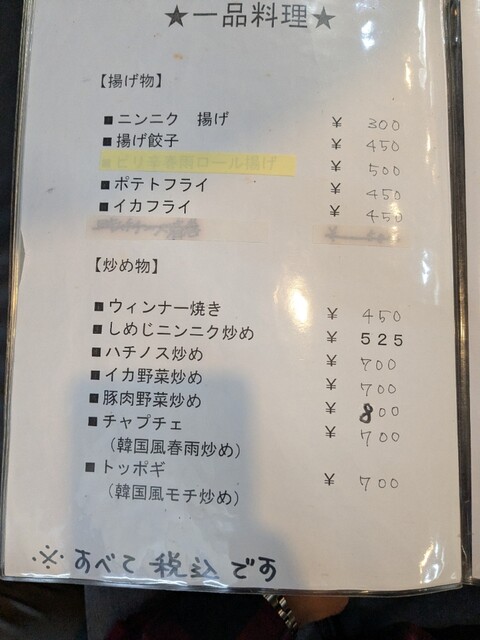 ★一品料理★
【揚げ物】
■ニンニク 揚げ ¥ 300
■揚げ餃子 ¥ 450
■ピリ辛春雨ロール揚げ ¥ 500
■ポテトフライ ¥ 450
■イカフライ ¥ 450
【炒め物】
■ウィンナー焼き ¥ 450
■しめじニンニク炒め ¥ 525
■ハチノス炒め ¥ 700
■イカ野菜炒め ¥ 700
■豚肉野菜炒め ¥ 800
■チャプチェ ¥ 700
（韓国風春雨炒め）
■トッポギ ¥ 700
（韓国風モチ炒め）
※ すべて 税込 です